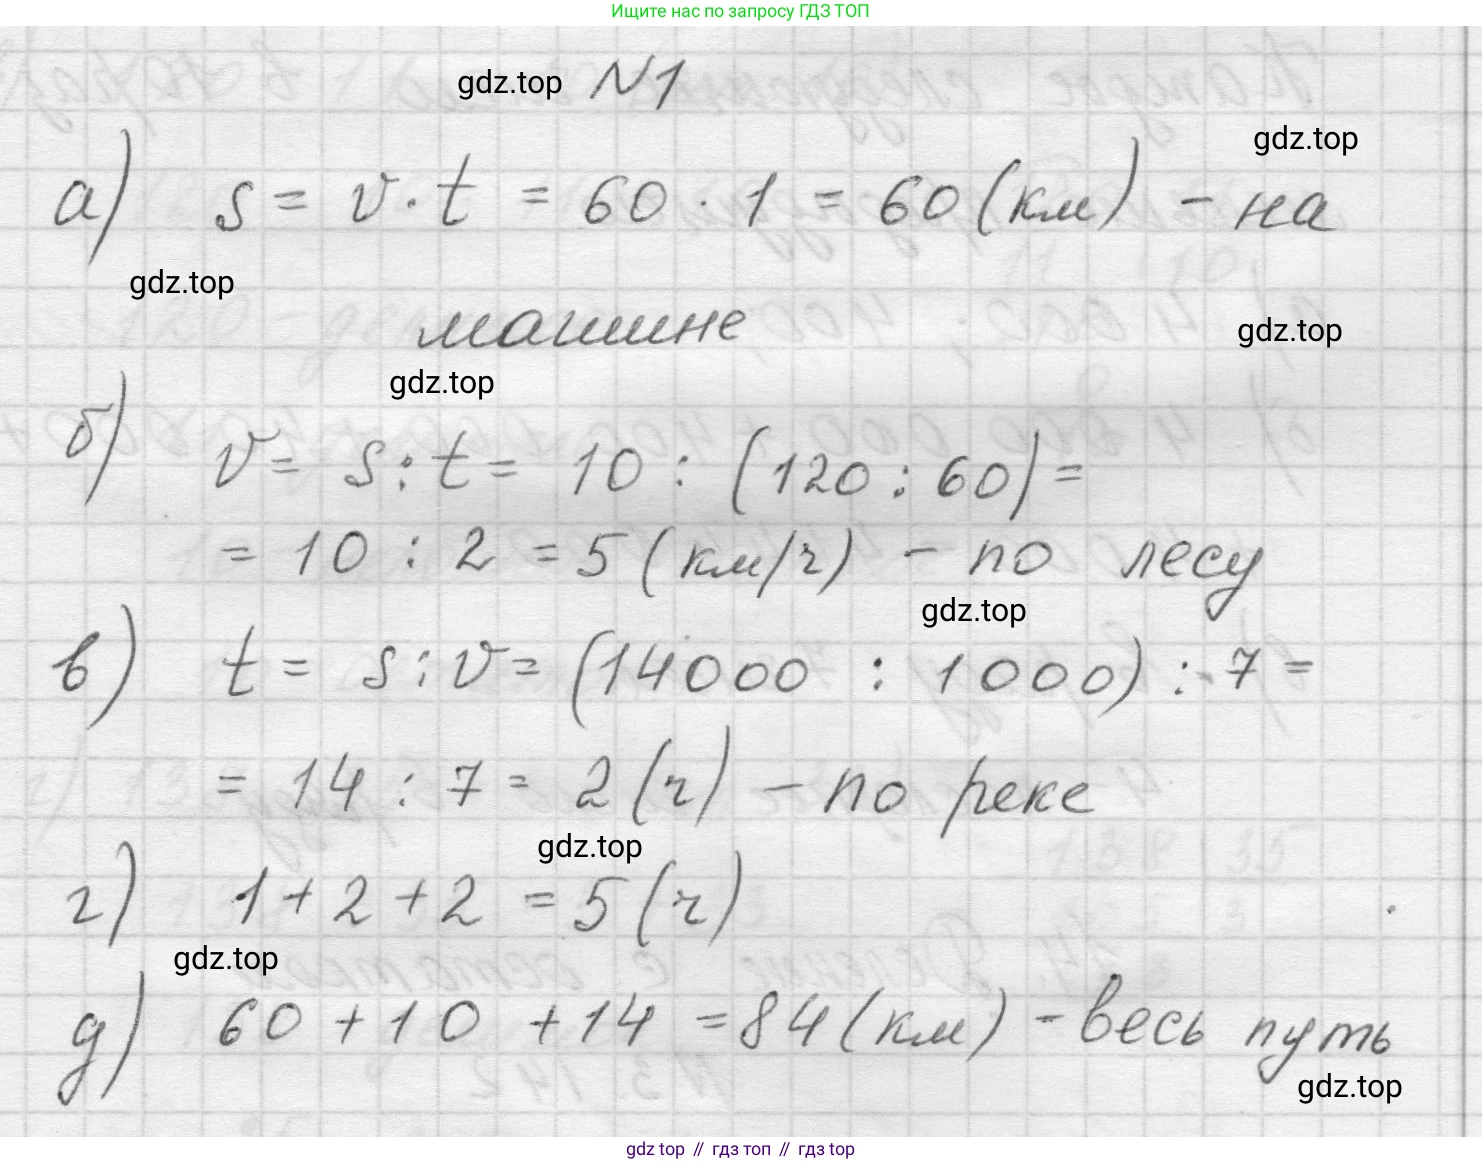 Ищите нас по запросу ГДЗ ТОП
gdz.top N1
gdz.top
а) s = v · t = 60 · 1 = 60 (км) - на
gdz.top
машине
gdz.top
gdz.top
б) v = s : t = 10 : (120 : 60) =
= 10 : 2 = 5 (км/ч) - по лесу
gdz.top
в) t = s : v = (14000 : 1000) : 7 =
= 14 : 7 = 2 (ч) - по реке
gdz.top
г) 1 + 2 + 2 = 5 (ч)
gdz.top
д) 60 + 10 + 14 = 84 (км) - весь путь
gdz.top
gdz top // гдз топ // гдз top